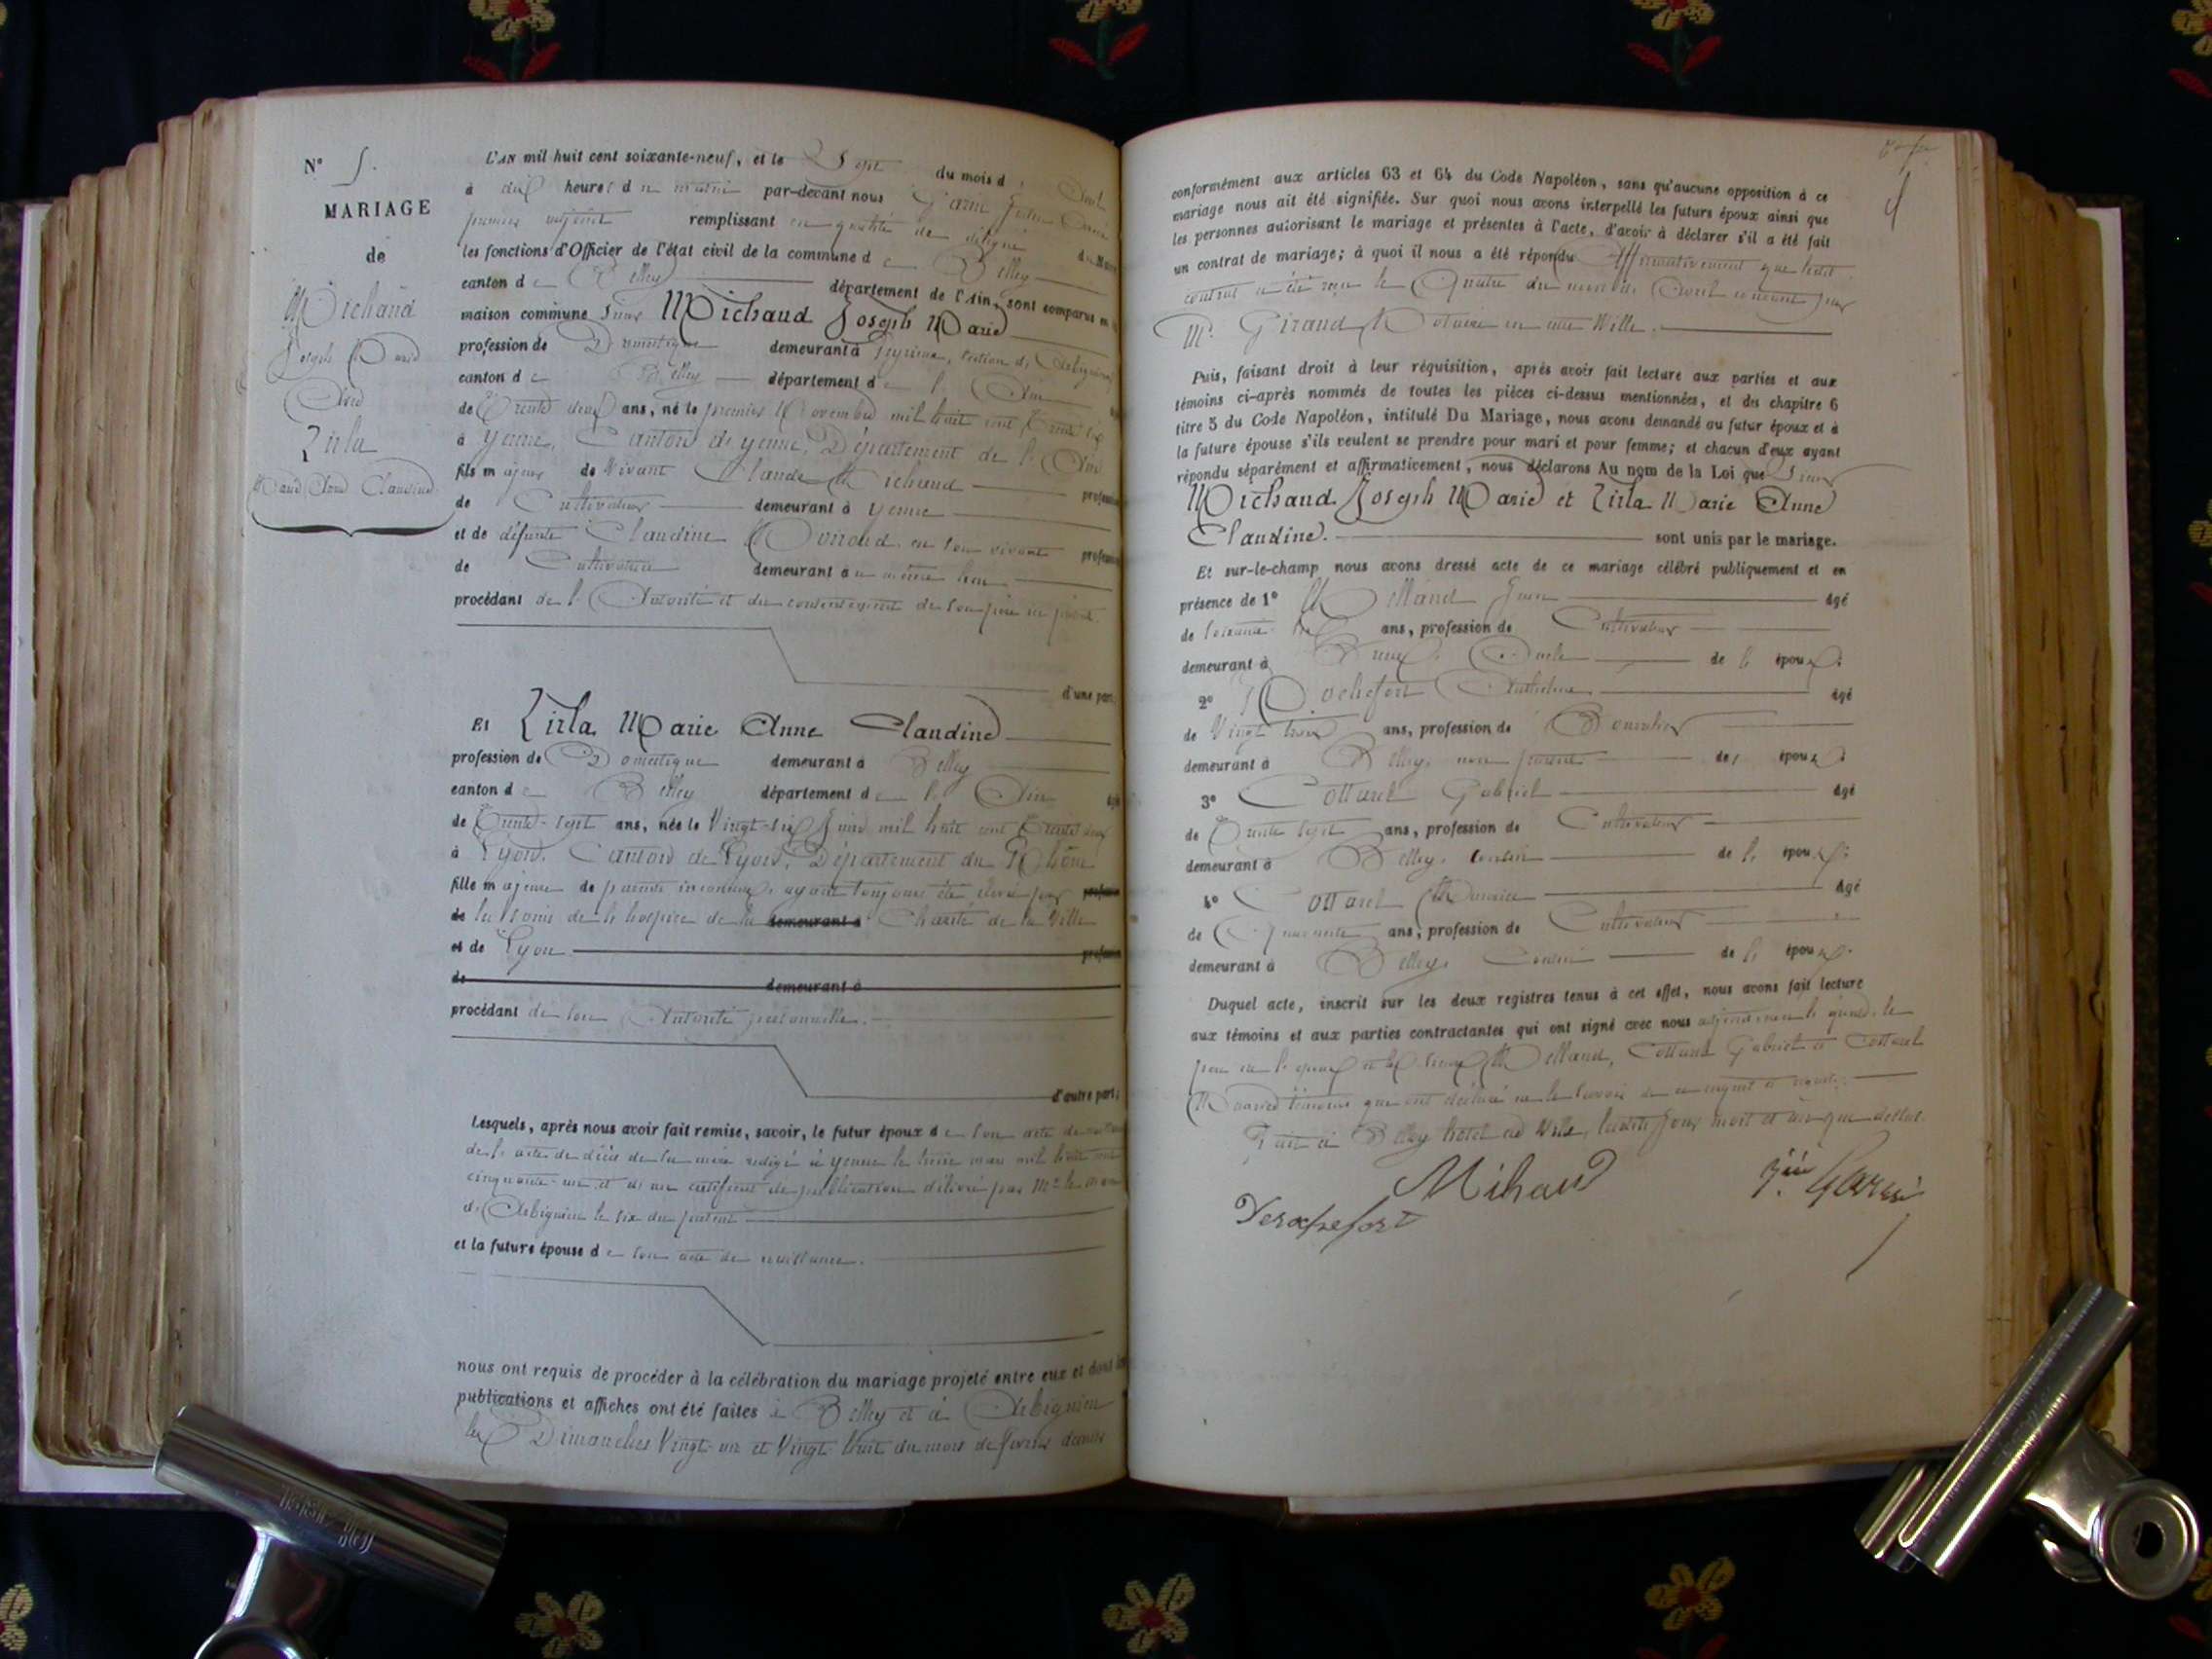 N° 5.
MARIAGE
de
Michaud
Joseph Marie
Avec
Zirla
Marie Anne Claudine
L'AN mil huit cent soixante-neuf, et le Sept du mois d' Avril
à dix heures du matin par-devant nous
premier adjoint remplissant en qualité de délégué du Maire
les fonctions d'Officier de l'état civil de la commune de Belley
canton de Belley département de l'Ain, sont comparus en la
maison commune Sieur Michaud Joseph Marie
profession de Domestique demeurant à Peyrieu, section d'Arbignieu
canton de Belley département de l'Ain
de Trente deux ans, né le premier Novembre mil huit cent Trente six
à Yenne, Canton de Yenne, Département de l'Ain
fils majeur de Vivant Claude Michaud profession
de Cultivateur demeurant à Yenne
et de défunte Claudine en son vivant profession
de Cultivatrice demeurant au même lieu
procédant de l'Autorité et du consentement de son père ici présent.
d'une part;
Et Zirla Marie Anne Claudine
profession de Domestique demeurant à Belley
canton de Belley département de l'Ain âgée
de Trente-sept ans, née le Vingt-six Juin mil huit cent Trente deux
à Lyon, Canton de Lyon, Département du Rhône
fille majeure de parents inconnus, ayant toujours été élevée par profession
de les soins de l'hospice de la demeurant à Charité de la Ville
et de Lyon profession
de demeurant à
procédant de son Autorité personnelle.
d'autre part;
Lesquels, après nous avoir fait remise, savoir, le futur époux de son acte de naissance
de l'acte de décès de sa mère rédigé à Yenne le treize mars mil huit cent
cinquante-un et d'un certificat de publication délivré par Mr le maire
d'Arbignieu le six du présent
et la future épouse de son acte de naissance.
nous ont requis de procéder à la célébration du mariage projeté entre eux et dont les
publications et affiches ont été faites à Belley et à Arbignieu
les Dimanches Vingt-un et Vingt-huit du mois de février dernier
conformément aux articles 63 et 64 du Code Napoléon, sans qu'aucune opposition à ce
mariage nous ait été signifiée. Sur quoi nous avons interpellé les futurs époux ainsi que
les personnes autorisant le mariage et présentes à l'acte, d'avoir à déclarer s'il a été fait
un contrat de mariage; à quoi il nous a été répondu Affirmativement que ledit
contrat a été reçu le Quatre du mois d'Avril courant par
Me Giraud Notaire en cette Ville.
Puis, faisant droit à leur réquisition, après avoir fait lecture aux parties et aux
témoins ci-après nommés de toutes les pièces ci-dessus mentionnées, et du chapitre 6
titre 5 du Code Napoléon, intitulé Du Mariage, nous avons demandé au futur époux et à
la future épouse s'ils veulent se prendre pour mari et pour femme; et chacun d'eux ayant
répondu séparément et affirmativement, nous déclarons Au nom de la Loi que Sieur
Michaud Joseph Marie et Zirla Marie Anne
Claudine. sont unis par le mariage.
Et sur-le-champ nous avons dressé acte de ce mariage célébré publiquement et en
présence de 1° Melland âgé
de ans, profession de Cultivateur
demeurant à Oncle de l'époux.
2° Rochefort Anthelme âgé
de Vingt trois ans, profession de Bourrelier
demeurant à Belley, non parent des époux.
3° Cottarel Gabriel âgé
de Trente sept ans, profession de Cultivateur
demeurant à Belley, Cousin de l'époux.
4° Cottarel Maurice âgé
de Quarante ans, profession de Cultivateur
demeurant à Belley, Cousin de l'époux.
Duquel acte, inscrit sur les deux registres tenus à cet effet, nous avons fait lecture
aux témoins et aux parties contractantes qui ont signé avec nous
Melland, Cottarel Gabriel et Cottarel
témoins qui ont déclaré ne le savoir de ce enquis et requis.
Fait à Belley hôtel de Ville, lesdits jour, mois et an que dessus.
Mihaud
Derochefort